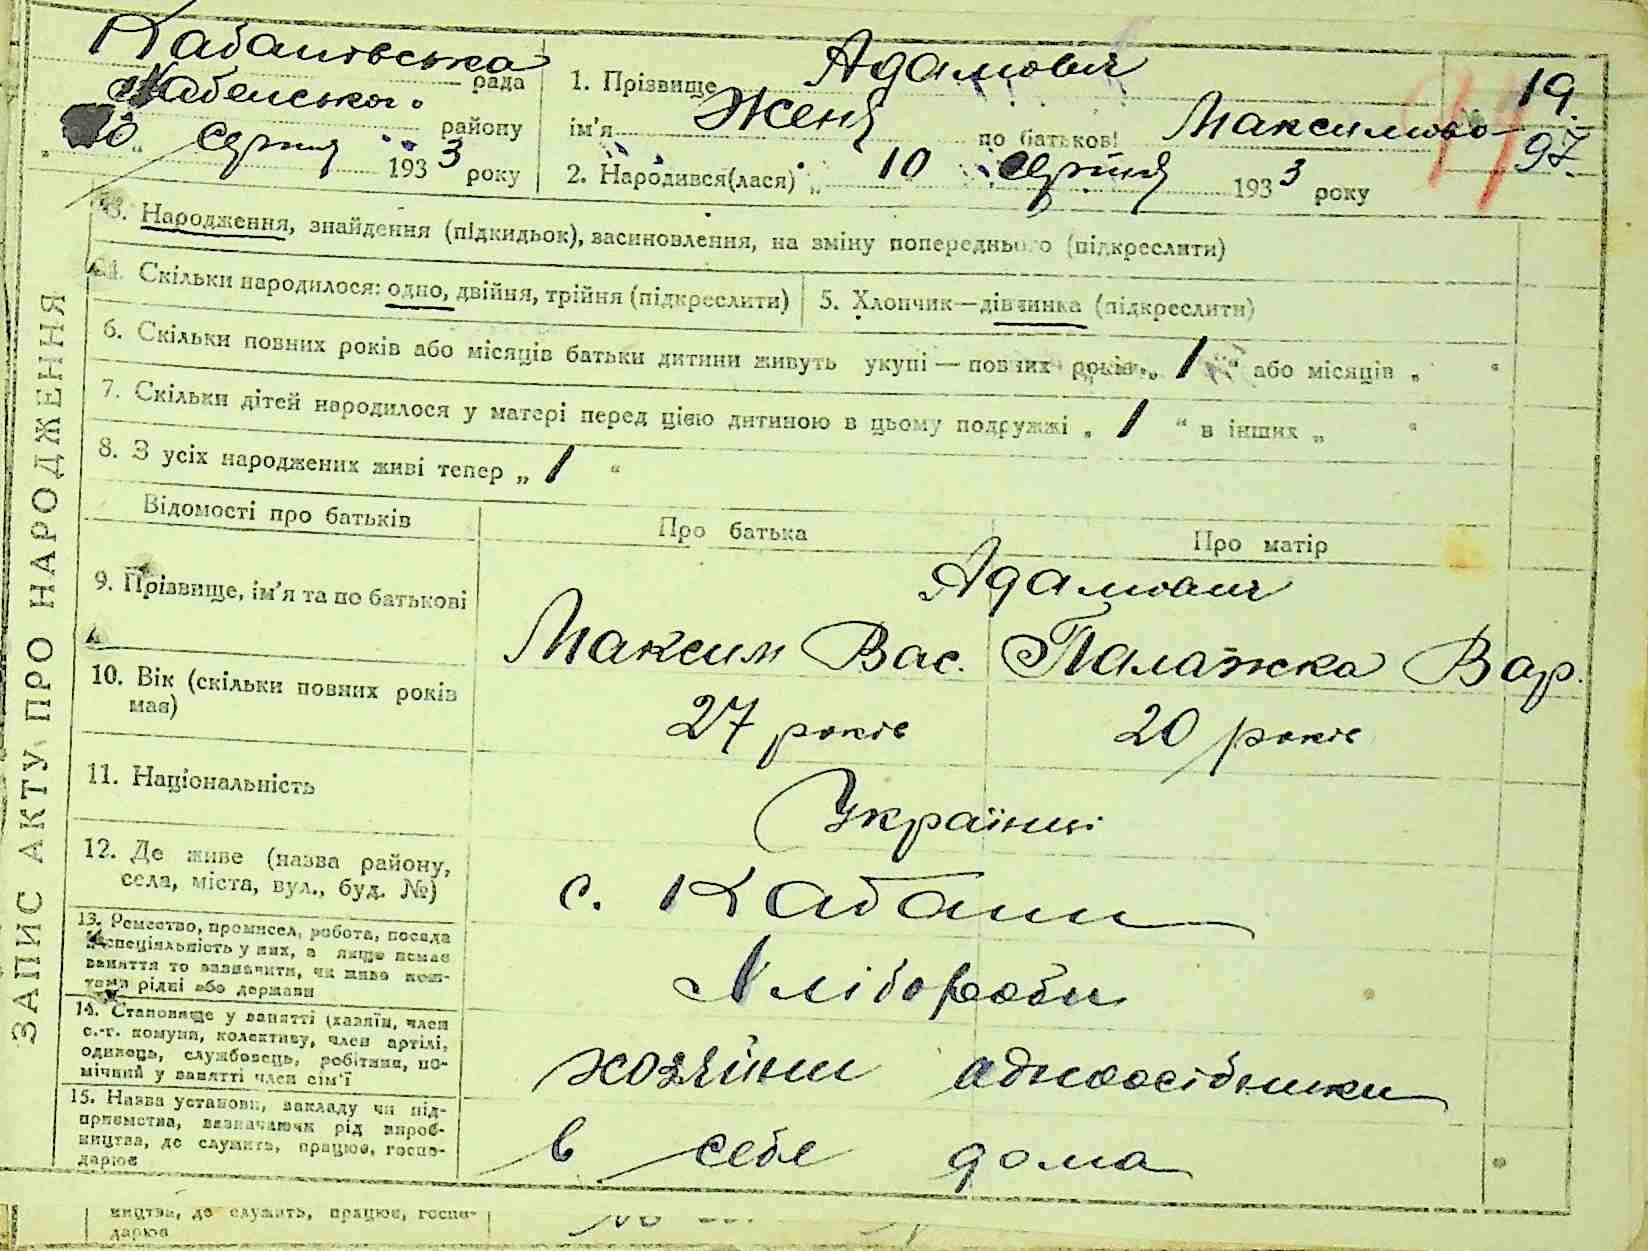 Кабанівська рада
району
серпня 1933 року
1. Прізвище Адамович
ім'я Женя по батькові Максимово
2. Народився(лася) „ 10 серпня 1933 року
19.
97.
ЗАПИС АКТУ ПРО НАРОДЖЕННЯ
3. Народження, знайдення (підкидьок), васиновлення, на зміну попереднього (підкреслити)
4. Скільки народилося: одно, двійня, трійня (підкреслити)
5. Хлопчик—дівчинка (підкреслити)
6. Скільки повних років або місяців батьки дитини живуть укупі — повних років „ 1 “ або місяців „ “
7. Скільки дітей народилося у матері перед цією дитиною в цьому подружжі „ 1 “ в інших „ “
8. З усіх народжених живі тепер „ 1 “
Відомості про батьків
Про батька
Про матір
9. Прізвище, ім'я та по батькові
Адамович
Максим Вас. Палажка Вар.
10. Вік (скільки повних років
має)
27 років 20 років
11. Національність
Українці
12. Де живе (назва району,
села, міста, вул., буд. №)
с. Кабани
13. Ремество, промисел, робота, посада
спеціяльність у них, а якщо немає
заняття то зазначити, чи живе кош-
тами рідні або держави
Хлібороби
14. Становище у занятті (хазяїн, член
с.-г. комуни, колективу, член артілі,
одинець, службовець, робітник, по-
мічний у занятті член сім'ї
хозяїни адноосібники
15. Назва установи, закладу чи під-
приємства, визначаючи рід вироб-
ництва, де служить, працює, госпо-
дарює
в себе дома
ництва, де служить, працює, госпо-
дарює